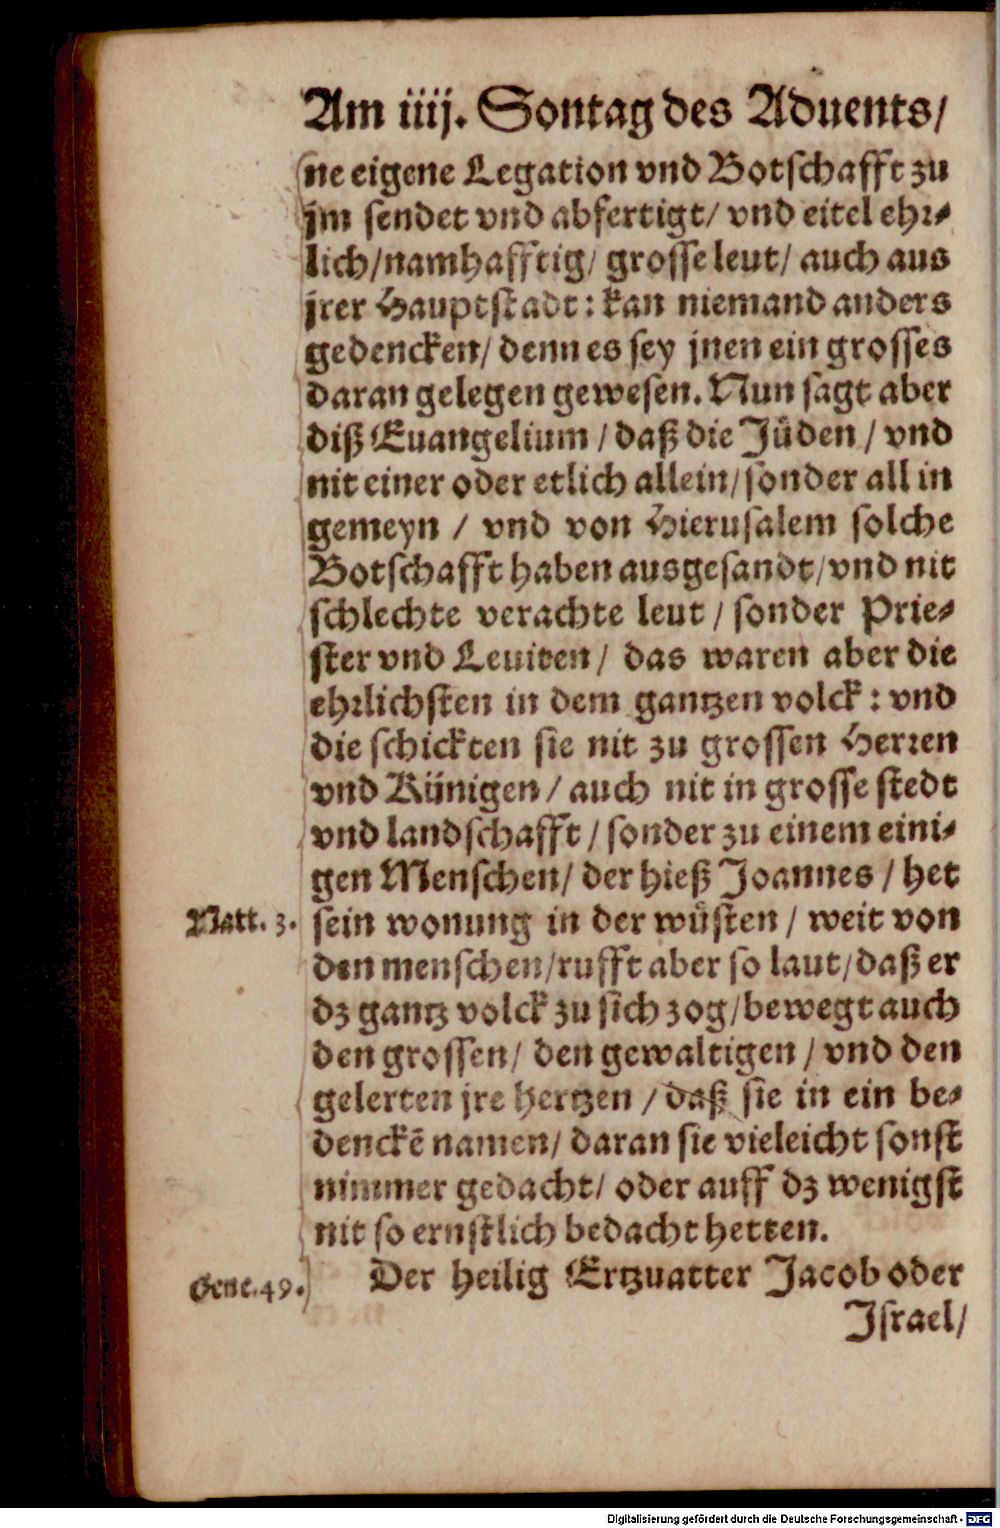 Am iiij. Sontag des Aduents/
ne eigene Legation vnd Botschafft zu
jm sendet vnd abfertigt/ vnd eitel ehr⸗
lich/namhafftig/ grosse leut/ auch aus
jrer Hauptstadt: kan niemand anders
gedencken/ denn es sey jnen ein grosses
daran gelegen gewesen. Nun sagt aber
diß Euangelium / daß die Jüden / vnd
nit einer oder etlich allein/sonder all in
gemeyn / vnd von Hierusalem solche
Botschafft haben ausgesandt/vnd nit
schlechte verachte leut / sonder Prie⸗
ster vnd Leuiten/ das waren aber die
ehrlichsten in dem gantzen volck: vnd
die schickten sie nit zu grossen Herren
vnd Künigen / auch nit in grosse stedt
vnd landschafft / sonder zu einem eini⸗
gen Menschen/ der hieß Joannes / het
Matt. 3. sein wonung in der wüsten / weit von
den menschen/rufft aber so laut/daß er
dz gantz volck zu sich zog/bewegt auch
den grossen/ den gewaltigen / vnd den
gelerten jre hertzen / daß sie in ein be⸗
denckē namen/ daran sie vieleicht sonst
nimmer gedacht/ oder auff dz wenigst
nit so ernstlich bedacht hetten.
Gene.49. Der heilig Ertzuatter Jacob oder
Israel/
Digitalisierung gefördert durch die Deutsche Forschungsgemeinschaft - DFG